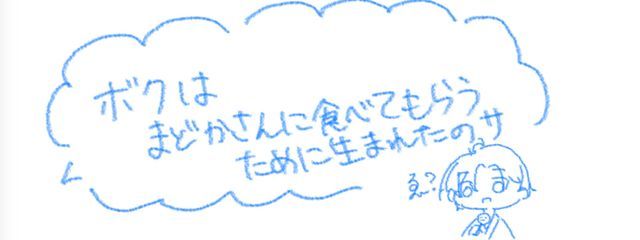 ボクは
まどかさんに食べてもらう
ために生まれたのサ
え…?